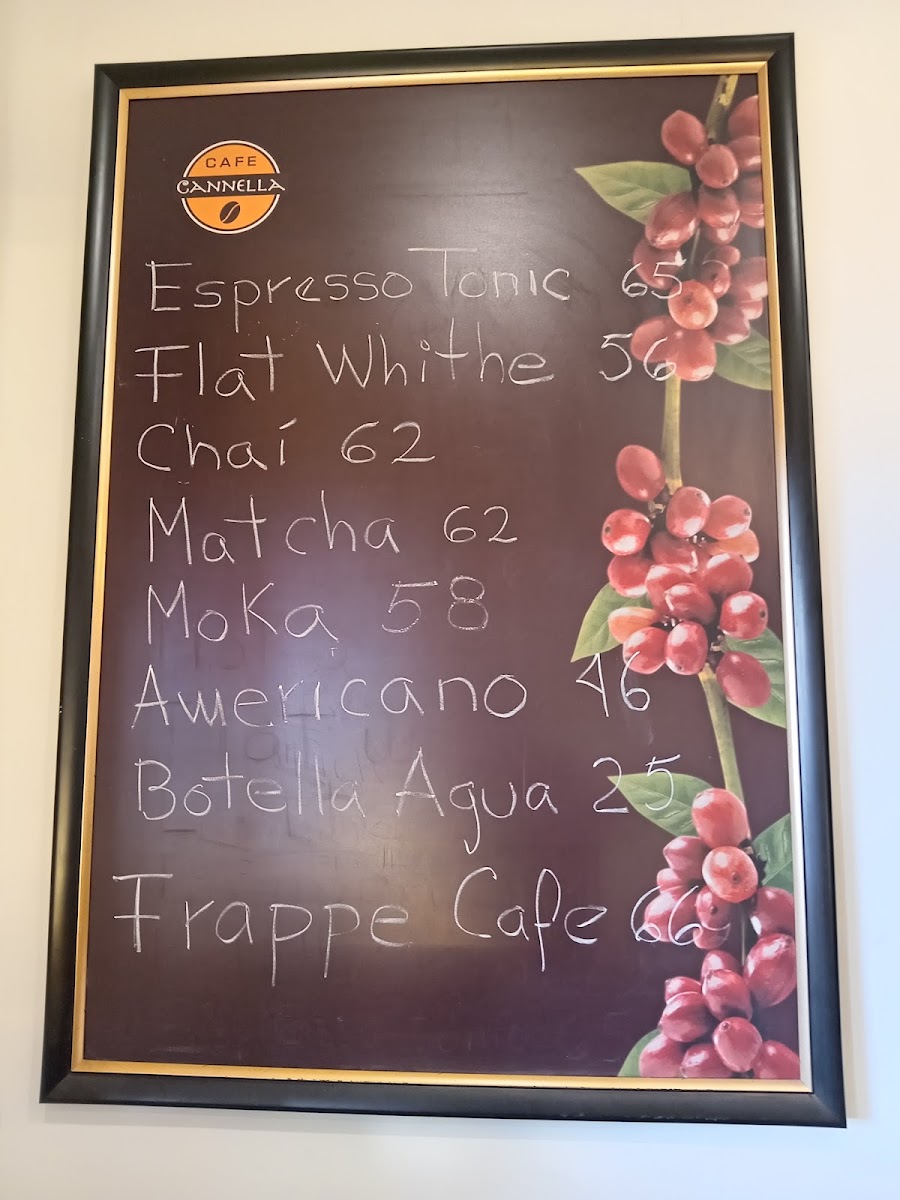 CAFE
CANNELLA
Espresso Tonic 65
Flat Whithe 56
Chaí 62
Matcha 62
Moka 58
Americano 46
Botella Agua 25
Frappe Cafe 66